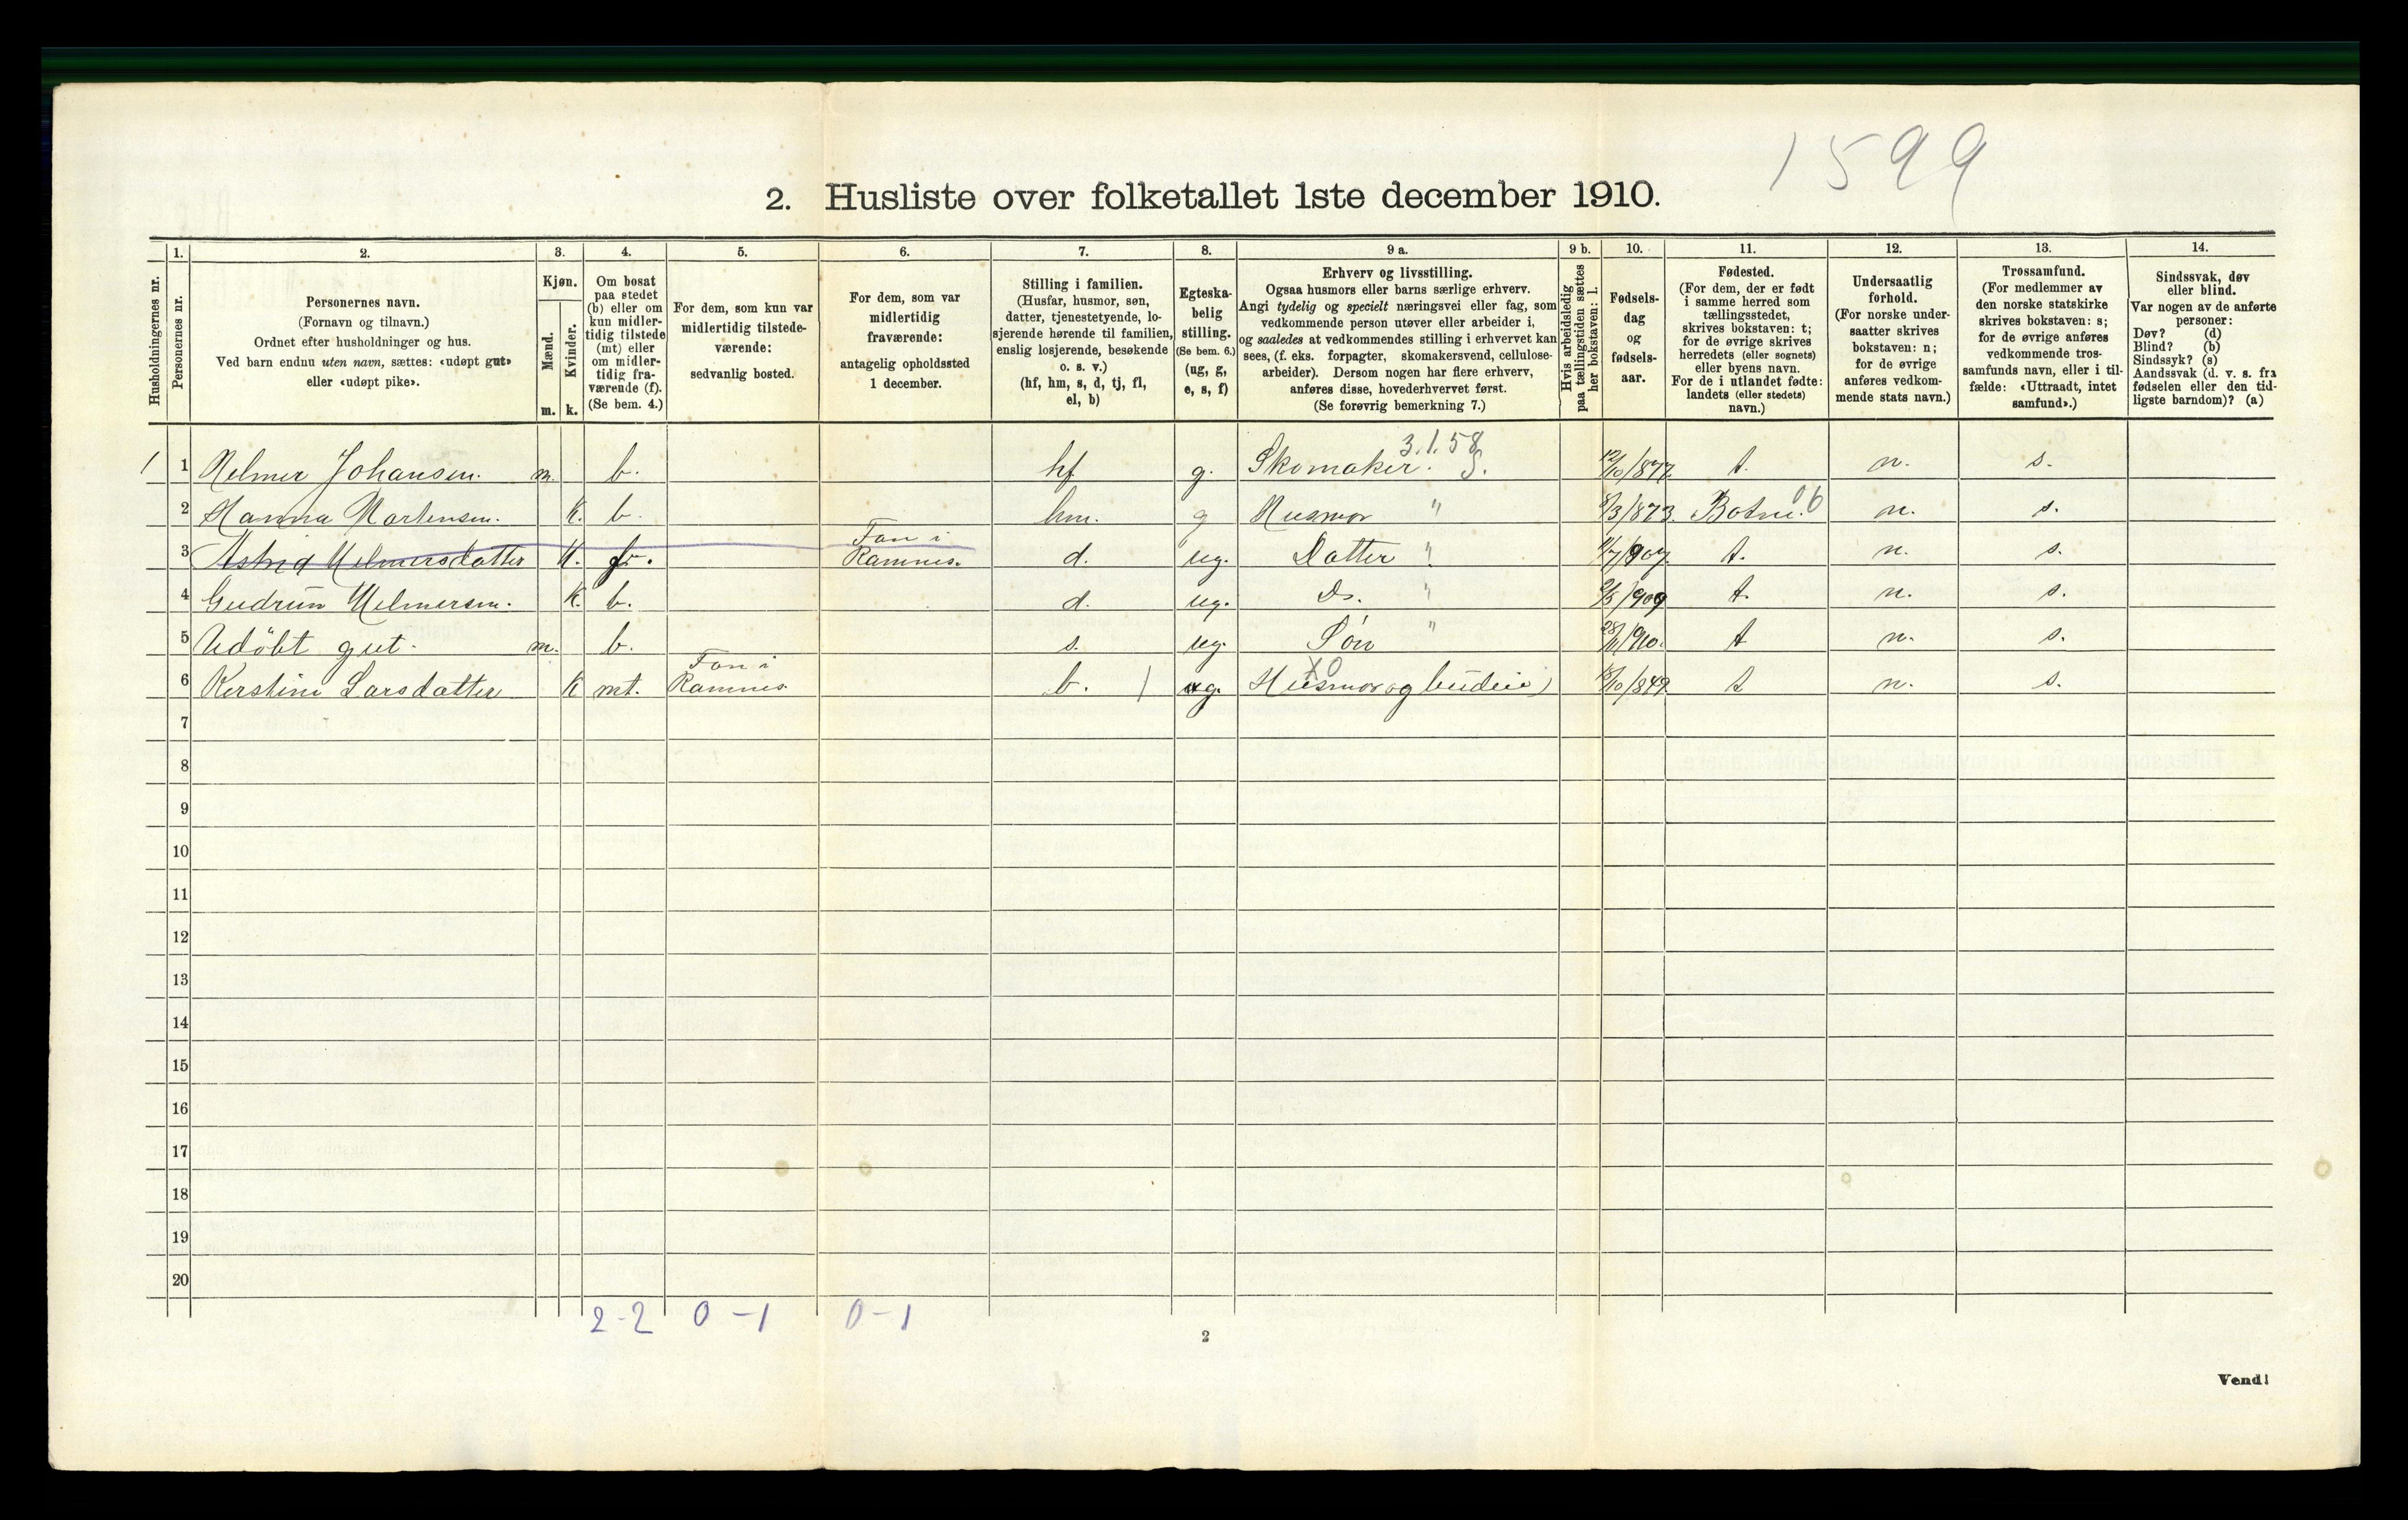 1599
2. Husliste over folketallet 1ste december 1910.
Husholdningernes nr.
1.
Personernes nr.
2.
Personernes navn.
(Fornavn og tilnavn.)
Ordnet efter husholdninger og hus.
Ved barn endnu uten navn, sættes: «udøpt gut»
eller «udøpt pike».
3.
Kjøn.
Mænd.
Kvinder.
m. k.
4.
Om bosat
paa stedet
(b) eller om
kun midler-
tidig tilstede
(mt) eller
om midler-
tidig fra-
værende (f).
(Se bem. 4.)
5.
For dem, som kun var
midlertidig tilstede-
værende:
sedvanlig bosted.
6.
For dem, som var
midlertidig
fraværende:
antagelig opholdssted
1 december.
7.
Stilling i familien.
(Husfar, husmor, søn,
datter, tjenestetyende, lo-
sjerende hørende til familien,
enslig losjerende, besøkende
o. s. v.)
(hf, hm, s, d, tj, fl,
el, b)
8.
Egteska-
belig
stilling.
(Se bem. 6.)
(ug, g,
e, s, f)
9 a.
Erhverv og livsstilling.
Ogsaa husmors eller barns særlige erhverv.
Angi tydelig og specielt næringsvei eller fag, som
vedkommende person utøver eller arbeider i,
og saaledes at vedkommendes stilling i erhvervet kan
sees, (f. eks. forpagter, skomakersvend, cellulose-
arbeider). Dersom nogen har flere erhverv,
anføres disse, hovederhvervet først.
(Se forøvrig bemerkning 7.)
9 b.
Hvis arbeidsledig
paa tællingstiden sættes
her bokstaven: l.
10.
Fødsels-
dag
og
fødsels-
aar.
11.
Fødested.
(For dem, der er født
i samme herred som
tællingsstedet,
skrives bokstaven: t;
for de øvrige skrives
herredets (eller sognets)
eller byens navn.
For de i utlandet fødte:
landets (eller stedets)
navn.)
12.
Undersaatlig
forhold.
(For norske under-
saatter skrives
bokstaven: n;
for de øvrige
anføres vedkom-
mende stats navn.)
13.
Trossamfund.
(For medlemmer av
den norske statskirke
skrives bokstaven: s;
for de øvrige anføres
vedkommende tros-
samfunds navn, eller i til-
fælde: «Uttraadt, intet
samfund».)
14.
Sindssvak, døv
eller blind.
Var nogen av de anførte
personer:
Døv? (d)
Blind? (b)
Sindssyk? (s)
Aandssvak (d. v. s. fra
fødselen eller den tid-
ligste barndom)? (a)
3.1.58
1 1 Helmer Johansen. m. b. hf g. Skomaker. S. 12/10/877. t. n. s.
2 Hanna Martensen. K. b. hm. g Husmor " 8/3/873. Botne. 06 n. s.
Fon i
3 Astrid Helmersdatter K. f. Ramnes. d. ug. Datter " 11/7/907. t. n. s.
4 Gudrun Helmersen. K. b. d. ug. Do. " 2/5/909 t. n. s.
5 Udöbt gut. m. b. s. ug. Sön " 28/11/910. t n. s.
Fon i XO
6 Kerstine Larsdatter K mt. Ramnes. b. ) g. Husmor og budeie) 18/10/849. t n. s.
7
8
9
10
11
12
13
14
15
16
17
18
19
20
2-2 0-1 0-1
2
Vend!